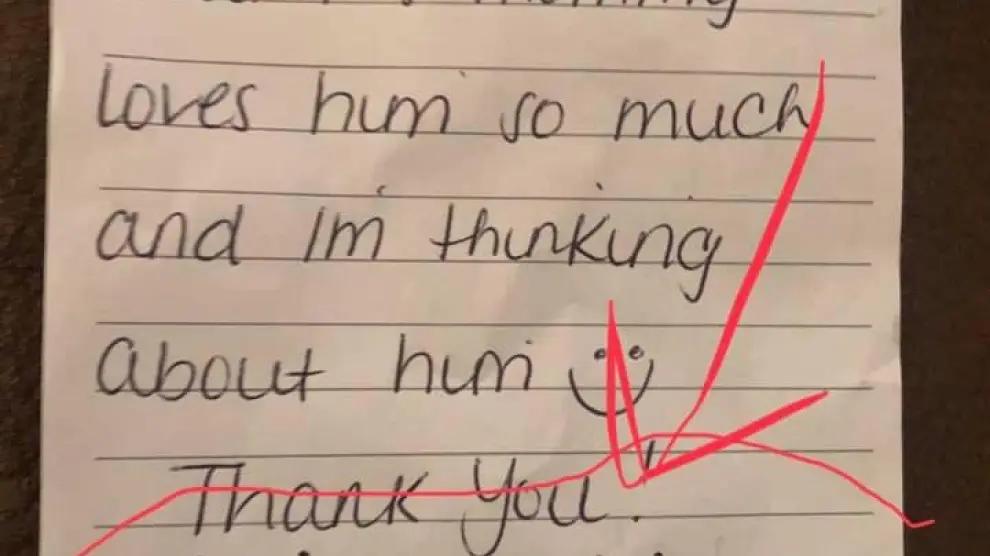 loves him so much
and I'm thinking
about him
Thank You!